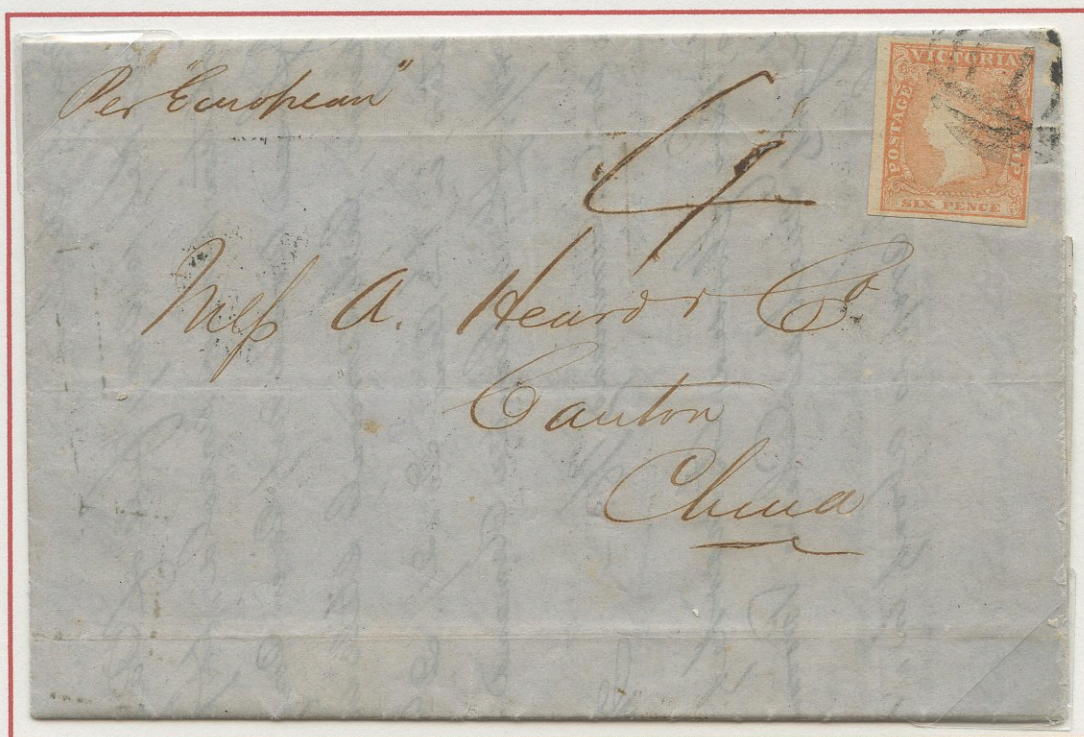 Per "European"
4
VICTORIA
POSTAGE
STAMP
SIX PENCE
Mess A. Heard & Co
Canton
China